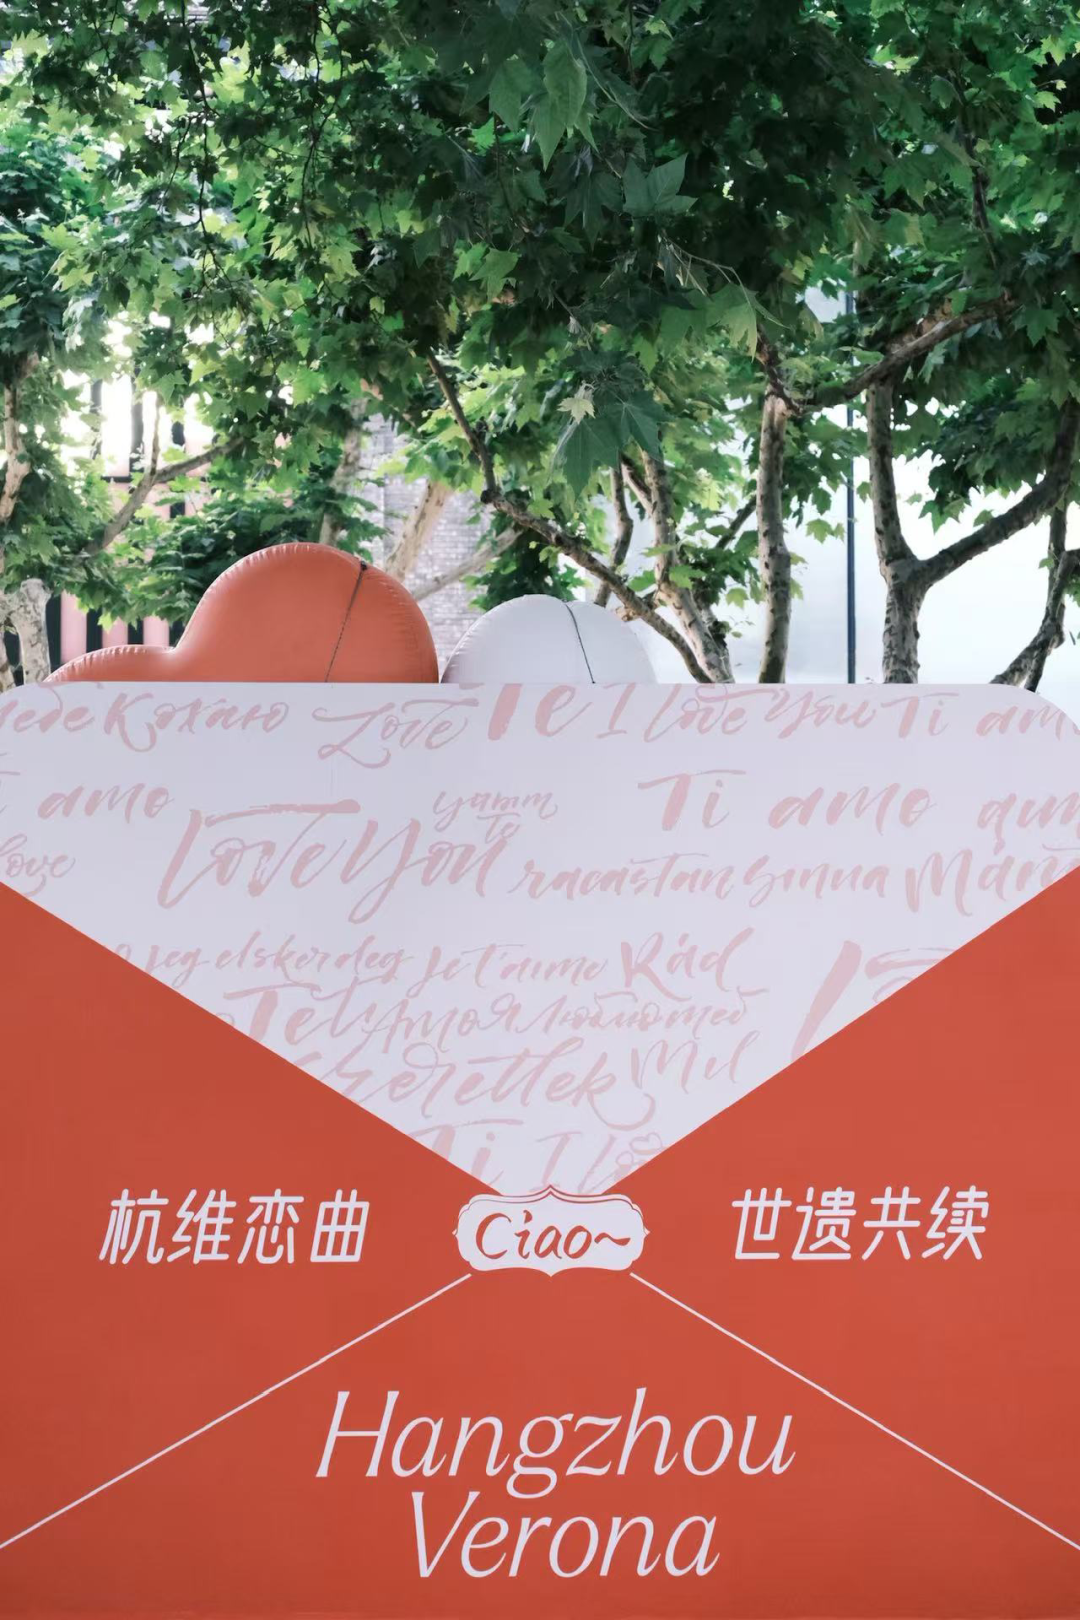 тебе Кохаю Love Te I love You Ti amo
Ti amo yamm Ti amo
te
love Love You racastan sinua Mam
jeg elsker deg je t'aime Rád
Te Amo Я люблю тебя
szeretlek Mil
Ti I lo
杭维恋曲 Ciao~ 世遗共续
Hangzhou
Verona